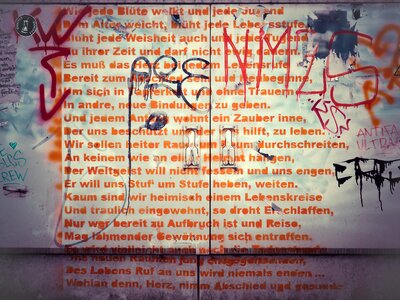 Wie jede Blüte welkt und jede Jugend
Dem Alter weicht, blüht jede Lebensstufe,
Blüht jede Weisheit auch und jede Tugend
Zu ihrer Zeit und darf nicht
Es muß das bei jedem Lebensrufe
Bereit zum Abschied sein und Neubeginne,
Um sich in Tapferkeit und ohne Trauern
In andre, neue Bindungen zu geben.
Und jedem Anfang wohnt ein Zauber inne,
Der uns beschützt und der uns hilft, zu leben.
Wir sollen heiter Raum um Raum durchschreiten,
An keinem wie an einer Heimat hängen,
Der Weltgeist will nicht fesseln und uns engen,
Er will uns Stuf' um Stufe heben, weiten.
Kaum sind wir heimisch einem Lebenskreise
Und traulich eingewohnt, so droht Erschlaffen,
Nur wer bereit zu Aufbruch ist und Reise,
Mag lähmender Gewöhnung sich entraffen.
Es wird vielleicht auch noch die Todesstunde
Uns neuen Räumen jung entgegensenden,
Des Lebens Ruf an uns wird niemals enden ...
Wohlan denn, Herz, nimm Abschied und gesunde
NMS
ANTIFA
ULTRAS
CREW